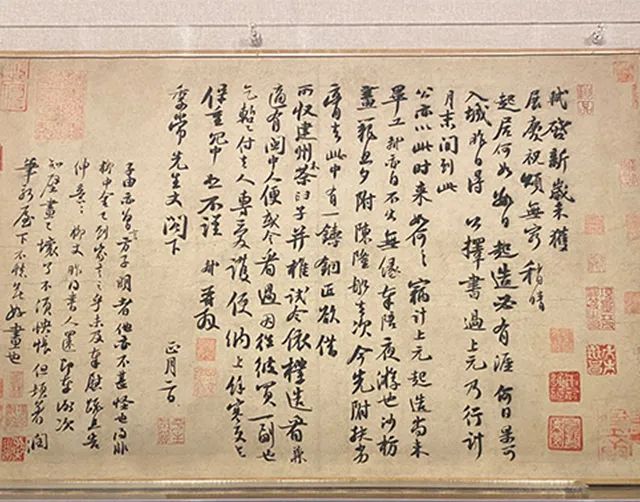 軾啓新歲未獲
展慶祝頌無窮稍晴
起居何如數日起造必有涯何日果可
入城昨日得公擇書過上元乃行計
月末間到此
公亦以此時来如何々竊計上元起造尚未
畢工軾亦自不出無緣奉陪夜遊也沙枋
畫籠旦夕附陳隆船去次今先附扶劣
膏去此中有一鑄銅匠欲借
所收建州木茶臼子并椎試令依樣造看兼
適有閩中人便或令看過因往彼買一副也
乞暫付去人專愛護便納上餘寒更乞
保重冗中恕不謹軾再拜
季常先生丈閣下
正月二日
子由亦曾言方子明者他亦不甚怪也得非
柳中舍已到家言之乎未及奉慰疏且告
伸意々柳丈昨得書人還即奉謝次
知壁畫已壞了不須怏悵但頓著潤
筆新屋下不愁無好畫也